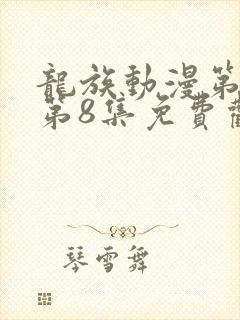 龍族動漫第
第8集免費
琴雪舞